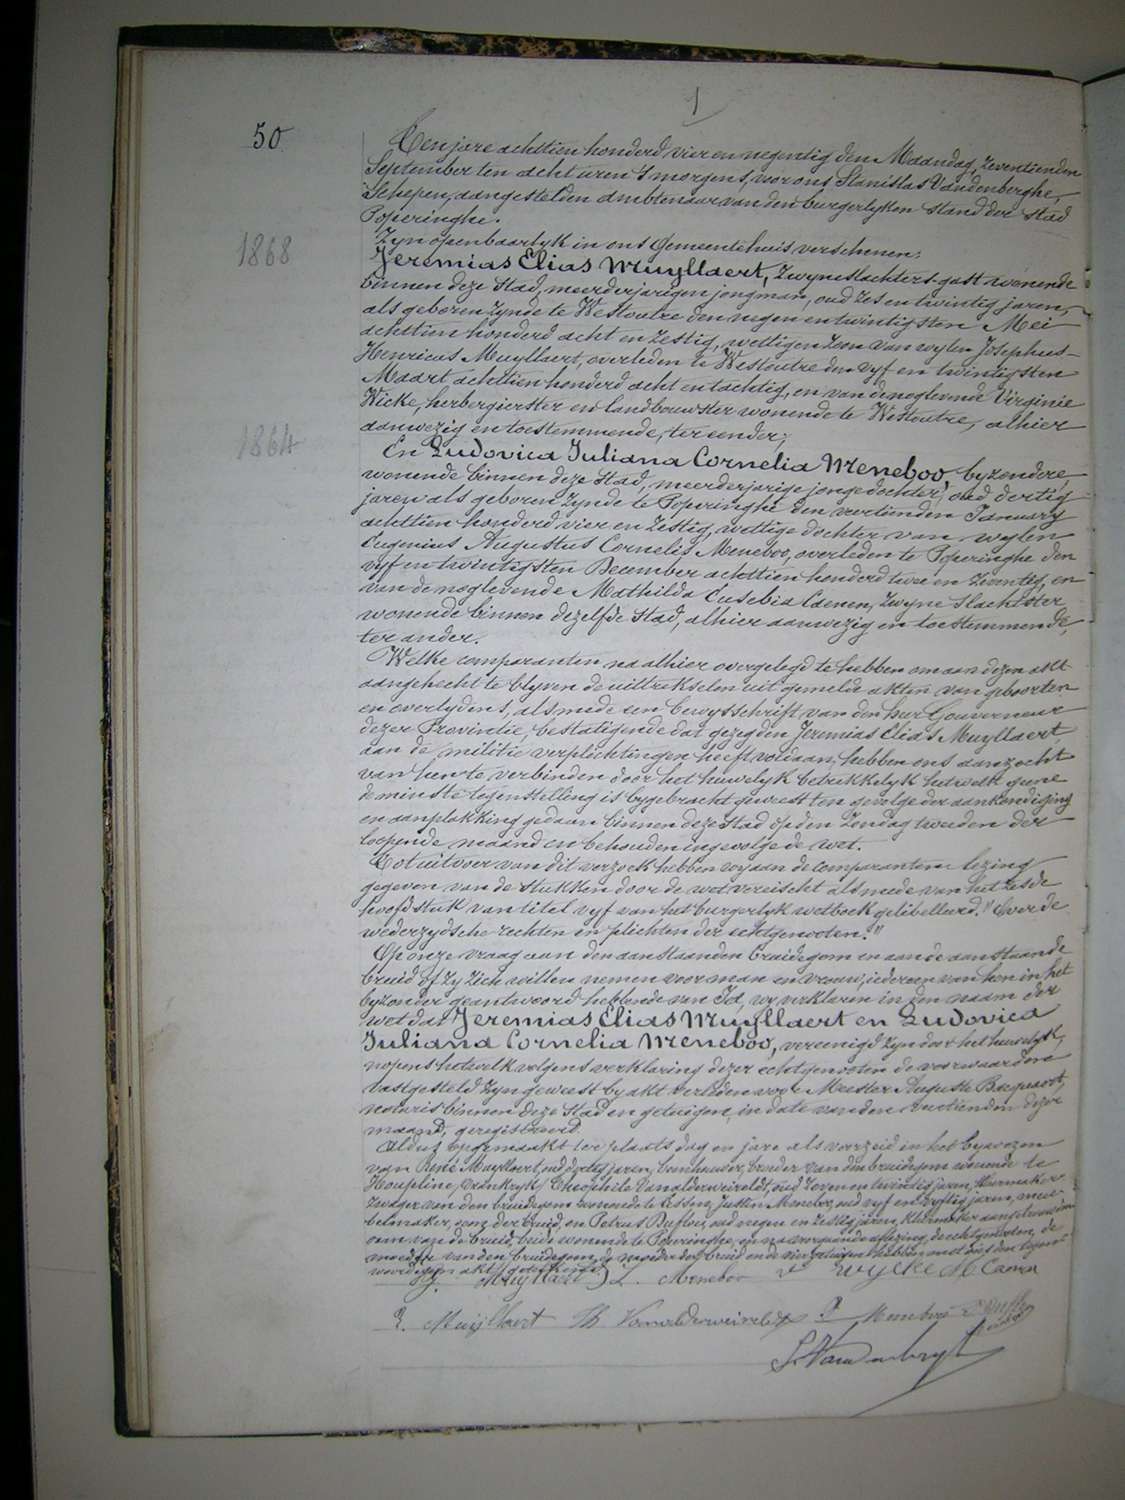 1
50
Ten jare achttien honderd vier en negentig den Maandag, zeventienden
September ten acht uren 's morgens, voor ons Stanislas Vandenberghe,
Schepen, aangestelden ambtenaar van den burgerlyken stand der stad
Poperinghe.
Zyn openbaarlyk in ons Gemeentehuis verschenen:
1868
Jeremias Elias Muyllaert, zwyneslachters-gast wonende
binnen deze stad, meerderjarigen jongman, oud zes en twintig jaren,
als geboren zynde te Westoutre den negen en twintigsten Mei
achttien honderd acht en zestig, wettigen zoon van wylen Josephus-
Henricus Muyllaert, overleden te Westoutre den vyf en twintigsten
Maart achttien honderd acht en tachtig, en van de noglevende Virginie
Wicke, herbergierster en landbouwster wonende te Westoutre, alhier
aanwezig en toestemmende, ter eender;
1864
En Ludovica Juliana Cornelia Meneboo, byzondere,
wonende binnen deze stad, meerderjarige jonge dochter, oud dertig
jaren als geboren zynde te Poperinghe den veertienden January
achttien honderd vier en zestig, wettige dochter van wylen
Eugenius Augustus Cornelis Meneboo, overleden te Poperinghe den
vyf en twintigsten December achttien honderd twee en zeventig, en
van de noglevende Mathilda Eusebia Caenen, zwyne slachtster
wonende binnen dezelfde stad, alhier aanwezig en toestemmende,
ter ander.
Welke comparanten na alhier overgelegd te hebben om aan dezen akt
aangehecht te blyven de uittrekselen uit gemelde akten van geboorten
en overlydens, alsmede een bewysschrift van den heer Gouverneur
dezer Provintie, bestatigende dat gezegden Jeremias Elias Muyllaert
aan de militie verplichtingen heeft voldaan, hebben ons aanzocht
van hen te verbinden door het huwelyk betrekkelyk hetwelk geene
de minste tegenstelling is bygebracht geweest ten gevolge der aankondiging
en aanplakking gedaan binnen deze stad op den Zondag tweeden der
loopende maand en behouden ingevolge de wet.
Tot uitvoer van dit verzoek hebben wy aan de comparanten lezing
gegeven van de stukken door de wet vereischt alsmede van het zesde
hoofdstuk van titel vyf van het burgerlyk wetboek gelibelleerd. "Over de
wederzydsche rechten en plichten der echtgenooten."
Op onze vraag aan den aanstaanden bruidegom en aan de aanstaande
bruid of zy zich willen nemen voor man en vrouw, iedereen van hen in het
byzonder geantwoord hebbende van Ja, wy verklaren in den naam der
wet dat Jeremias Elias Muyllaert en Ludovica
Juliana Cornelia Meneboo, vereenigd zyn door het huwelyk,
nopens hetwelk volgens verklaring dezer echtgenooten de voorwaarden
vastgesteld zyn geweest by akt verleden voor Meester Auguste
notaris binnen deze stad en getuigen, in date van den dezer
maand, geregistreerd.
Aldus opgemaakt ter plaats dag en jare als voorzeid in het bywezen
van René Muyllaert, oud dertig jaren, broeder van den bruidegom wonende te
Houpline, Frankryk, Theophile Vanalderweireldt, oud zeven en twintig jaren,
zwager van den bruidegom wonende te Essen, Justin Meneboo, oud vyf en vyftig jaren,
oom der bruid, en Petrus oud negen en zestig jaren,
oom van de bruid, beide wonende te Poperinghe, en na voorgaande aflezing, de echtgenooten, de
moeder van den bruidegom, de moeder der bruid en de vier getuigen hebben met ons den tegen-
woordigen akt geteekend.
J. Muyllaert L. Meneboo V Wycke M Caenen
R. Muyllaert Th Vanalderweireldt J Meneboo
S. Vandenberghe